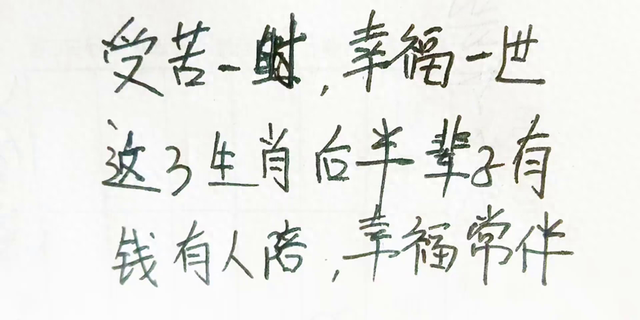 受苦一时,幸福一世
这3生肖后半辈子有
钱有人陪,幸福常伴